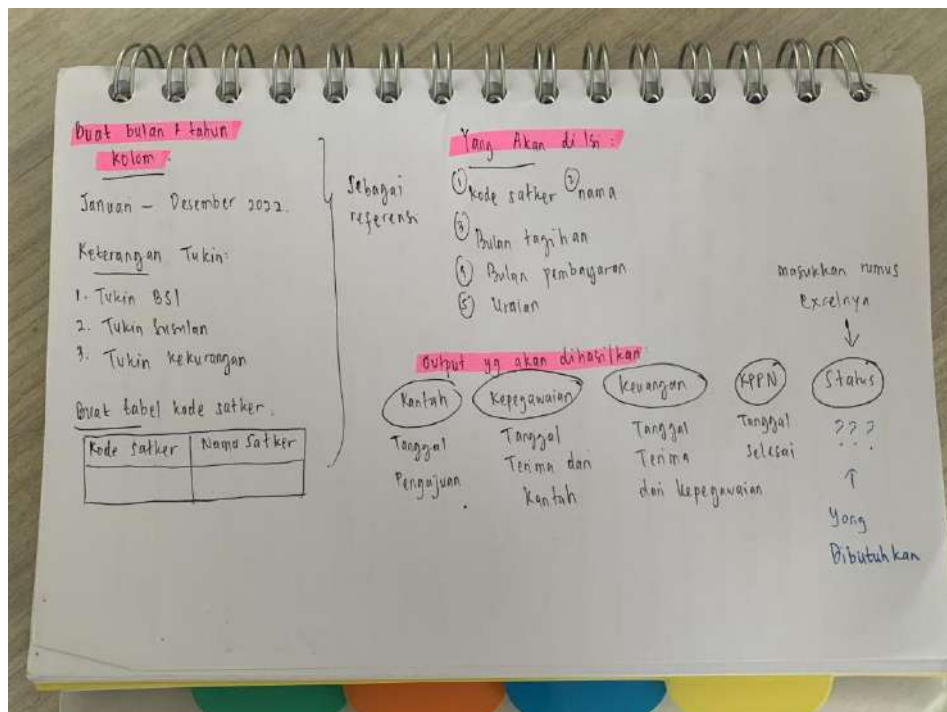 Buat bulan & tahun
kolom :
Januari – Desember 2022.
Keterangan Tukin:
1. Tukin BSI
2. Tukin Susulan
3. Tukin Kekurangan
Buat tabel kode satker.
Kode Satker Nama Satker
Sebagai
referensi
Yang Akan di Isi :
① Kode satker ② nama
③ Bulan tagihan
④ Bulan pembayaran
⑤ Uraian
masukkan rumus
Excelnya
Output yg akan dihasilkan
Kantah Kepegawaian Keuangan KPPN Status
Tanggal Pengajuan
Tanggal Terima dari Kantah
Tanggal Terima dari Kepegawaian
Tanggal selesai
? ? ?
Yang
Dibutuhkan